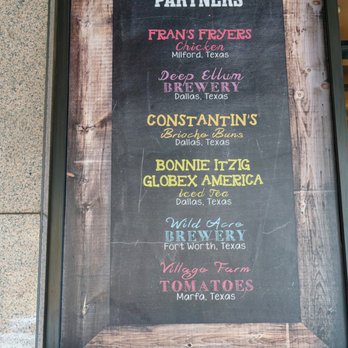 PARTNERS
FRAN'S FRYERS
Chicken
Milford, Texas
Deep Ellum
BREWERY
Dallas, Texas
CONSTANTIN'S
Brioche Buns
Dallas, Texas
BONNIE ITZIG
GLOBEX AMERICA
Iced Tea
Dallas, Texas
Wild Acre
BREWERY
Fort Worth, Texas
Village Farm
TOMATOES
Marfa, Texas